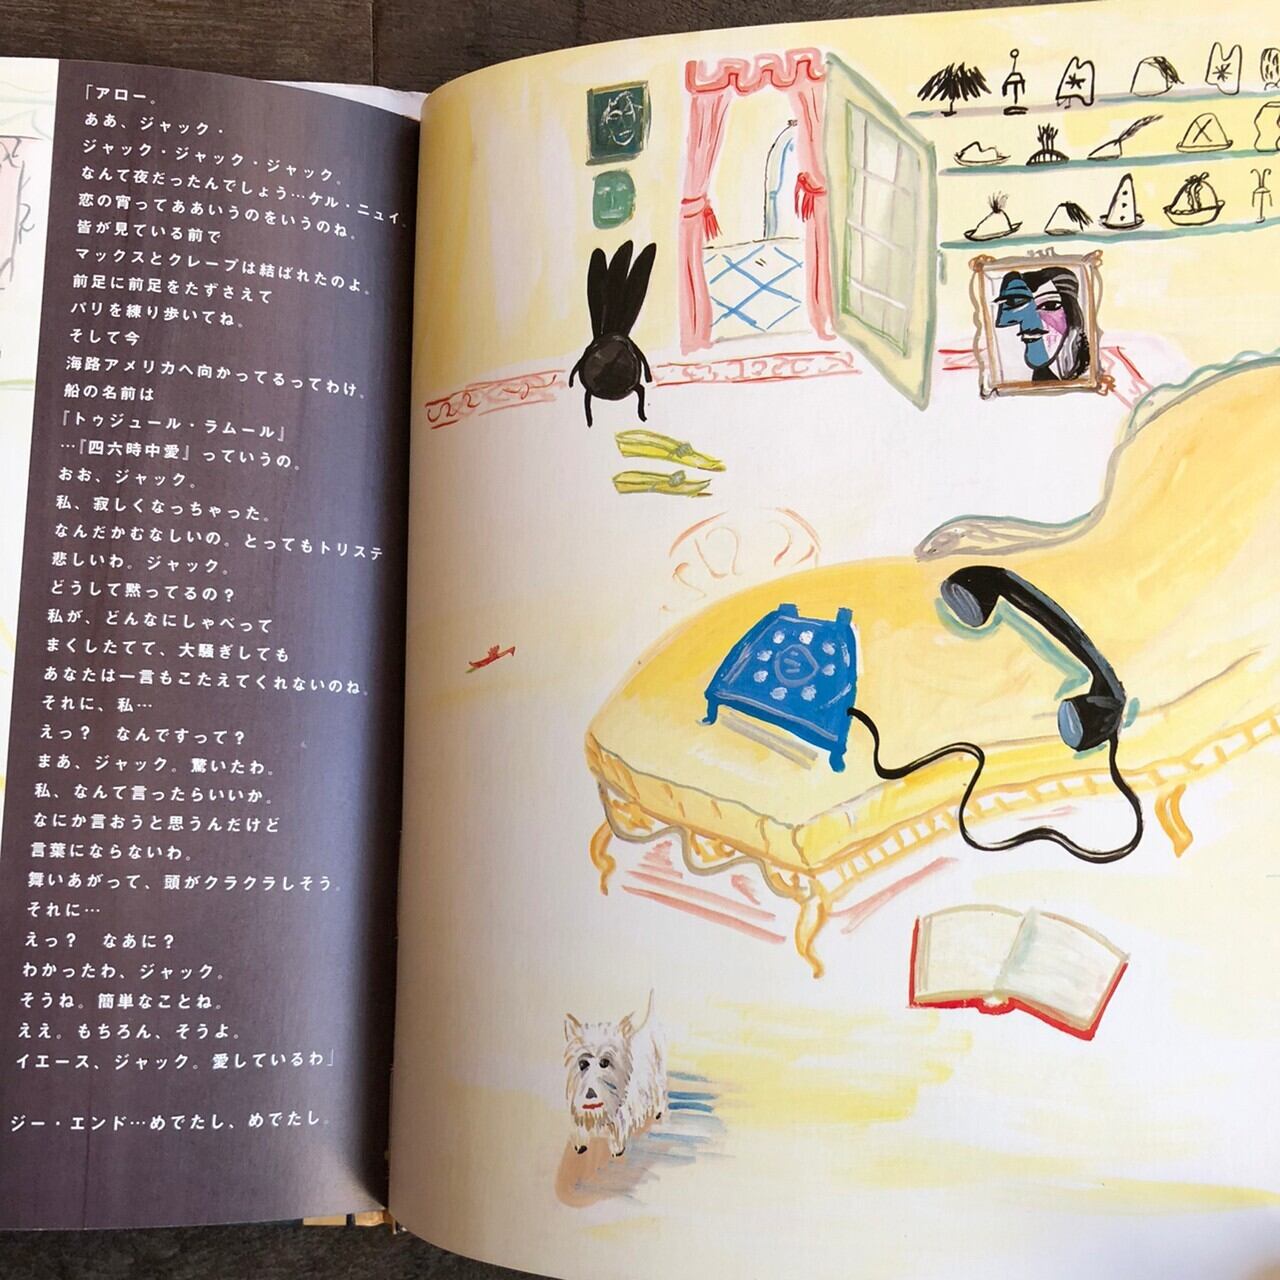 「アロー。
ああ、ジャック・
ジャック・ジャック・ジャック。
なんて夜だったんでしょう…ケル・ニュイ、
恋の宵ってああいうのをいうのね。
皆が見ている前で
マックスとクレープは結ばれたのよ。
前足に前足をたずさえて
パリを練り歩いてね。
そして今
海路アメリカへ向かってるってわけ。
船の名前は
『トゥジュール・ラムール』
…『四六時中愛』っていうの。
おお、ジャック。
私、寂しくなっちゃった。
なんだかむなしいの。とってもトリステ
悲しいわ。ジャック。
どうして黙ってるの?
私が、どんなにしゃべって
まくしたてて、大騒ぎしても
あなたは一言もこたえてくれないのね。
それに、私…
えっ? なんですって?
まあ、ジャック。驚いたわ。
私、なんて言ったらいいか。
なにか言おうと思うんだけど
言葉にならないわ。
舞いあがって、頭がクラクラしそう。
それに…
えっ? なあに?
わかったわ、ジャック。
そうね。簡単なことね。
ええ。もちろん、そうよ。
イエース、ジャック。愛しているわ」
ジー・エンド…めでたし、めでたし。